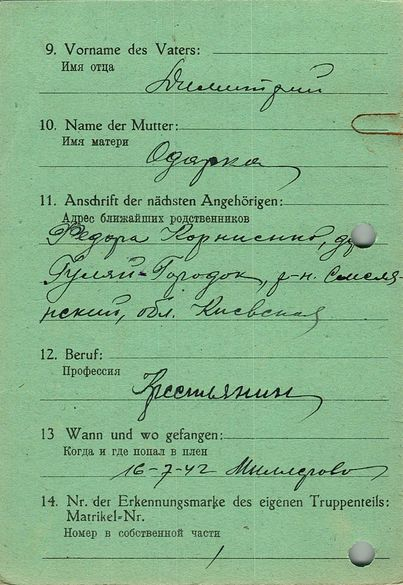 9. Vorname des Vaters:
Имя отца
Димитрий
10. Name der Mutter:
Имя матери
Одарка
11. Anschrift der nächsten Angehörigen:
Адрес ближайших родственников
Федора Корниенко,
Гуляй-Городок, р-н. Смеля-
нский, обл. Киевская
12. Beruf:
Профессия
Крестьянин
13 Wann und wo gefangen:
Когда и где попал в плен
16-7-42 Миллерово
14. Nr. der Erkennungsmarke des eigenen Truppenteils:
Matrikel-Nr.
Номер в собственной части
/